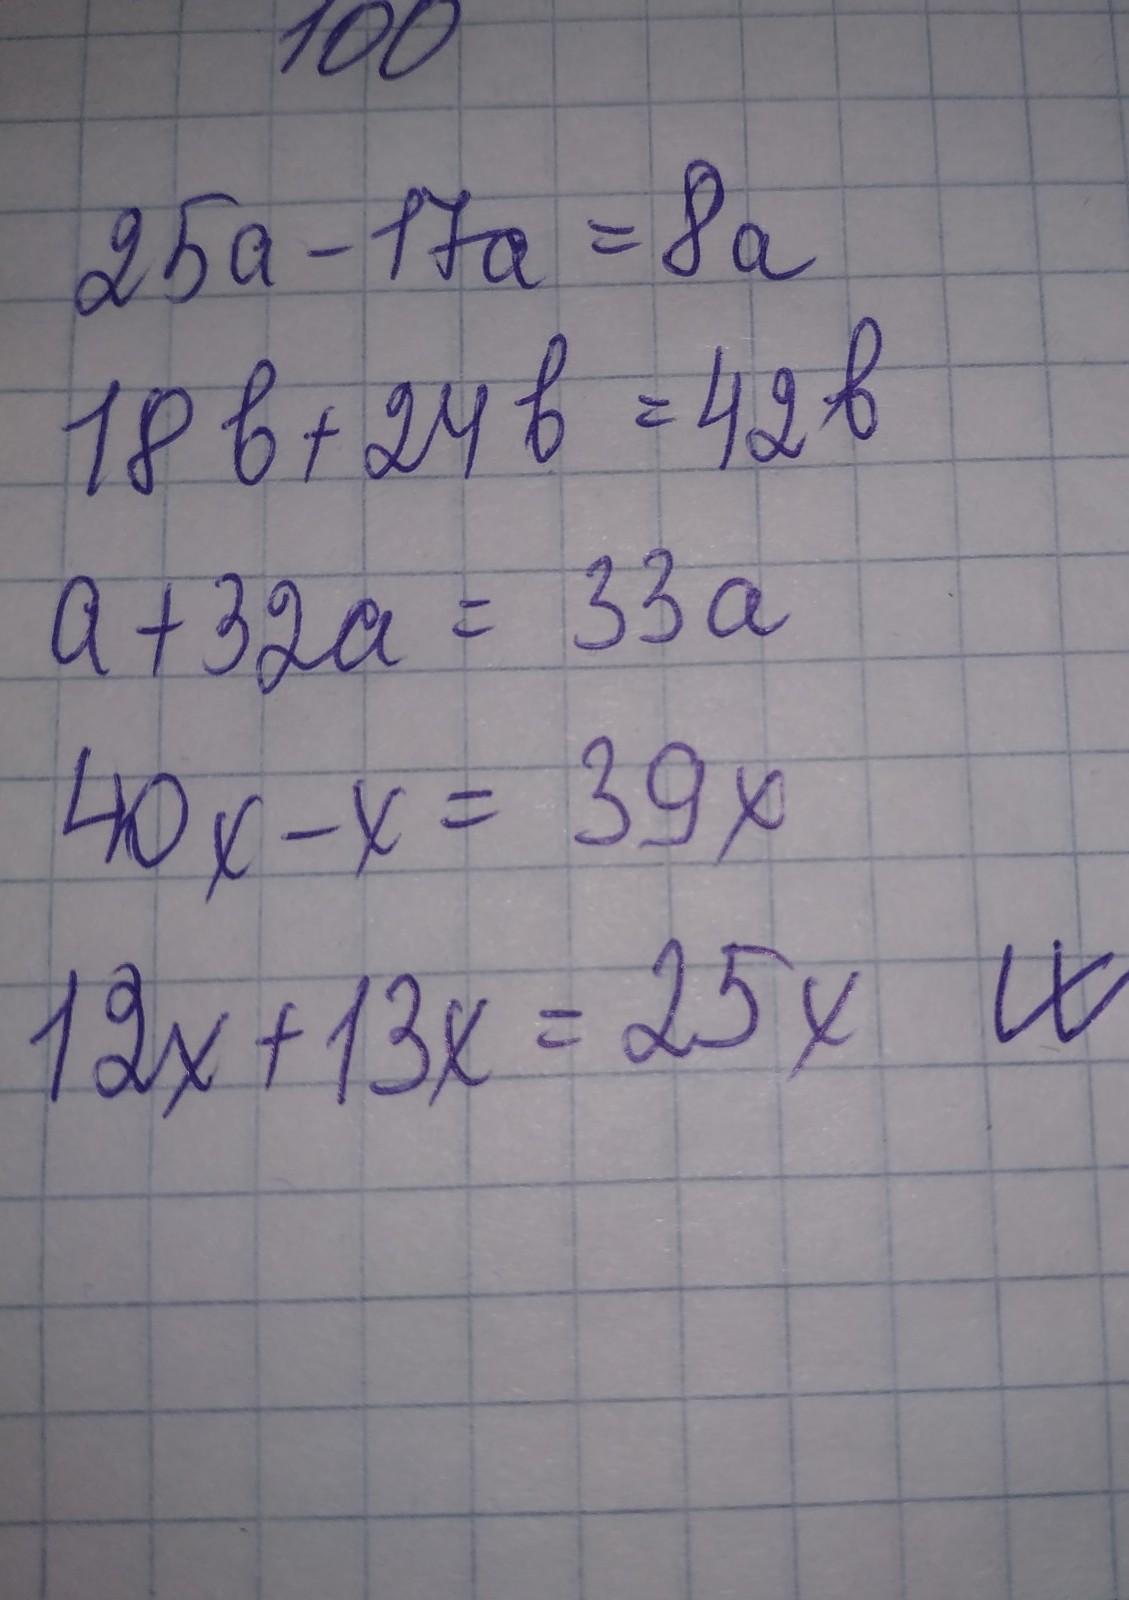 100
25a - 17a = 8a
18b + 24b = 42b
a + 32a = 33a
40x - x = 39x
12x + 13x = 25x